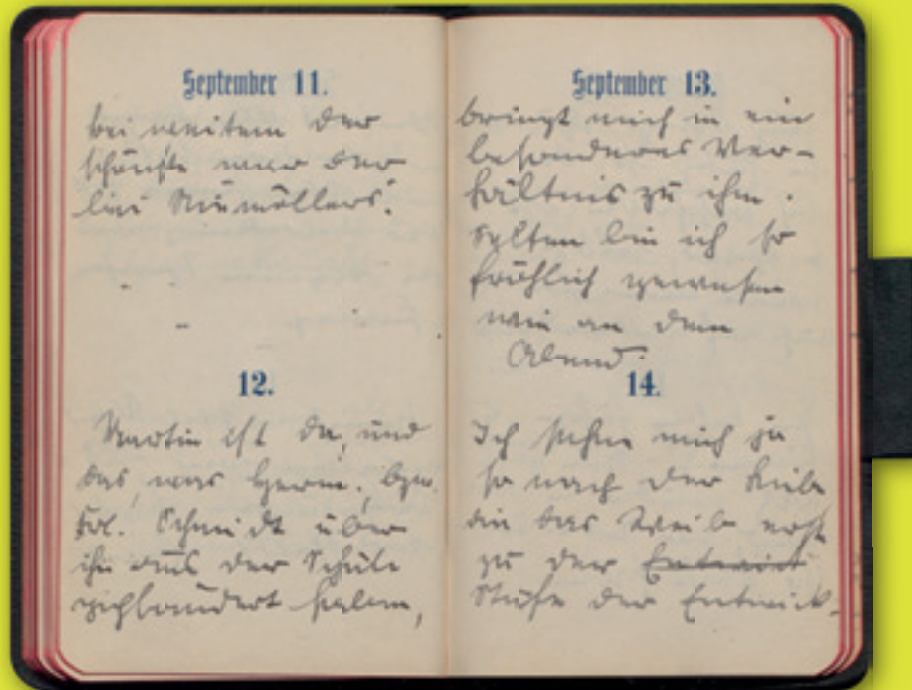 September 11.
bei weitem der
schönste war der
bei Niemöllers.
12.
Martin ist da, und
das, was Herm., bzw.
Frl. Schmidt über
ihn aus der Schule
geplaudert haben,
September 13.
bringt mich in ein
besonderes Ver-
hältnis zu ihm.
Selten bin ich so
fröhlich gewesen
wie an dem
Abend.
14.
Ich sehne mich ja
so nach der Liebe
die das Weib erst
zu der Entwick
Stufe der Entwick-